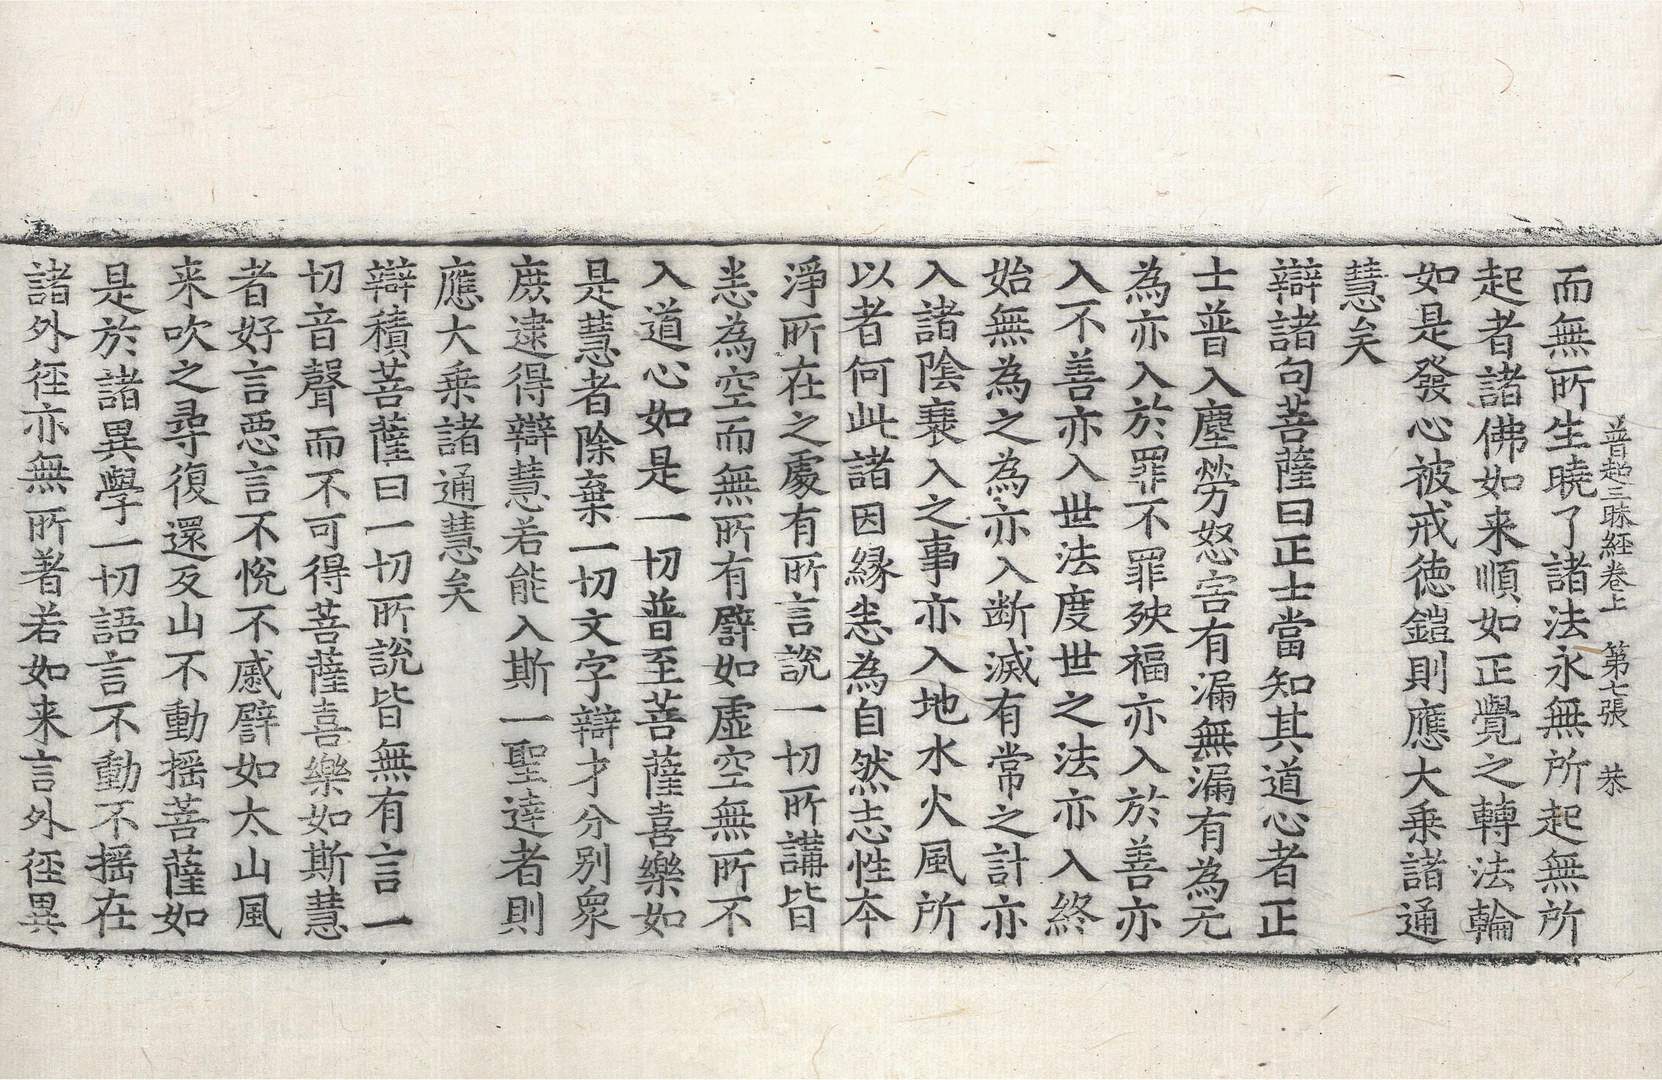 普超三昧経卷上　第七張　㳟
而無所生曉了諸法永無所起無所
起者諸佛如来順如正覺之轉法輪
如是發心被戒徳鎧則應大乗諸通
慧矣
辯諸句菩薩曰正士當知其道心者正
士普入塵勞怒害有漏無漏有為无
為亦入於罪不罪殃福亦入於善亦
入不善亦入世法度世之法亦入終
始無為之為亦入断滅有常之計亦
入諸陰衰入之事亦入地水火風所
以者何此諸因縁恚為自然志性本
淨所在之處有所言說一切所講皆
恚為空而無所有譬如虚空無所不
入道心如是一切普至菩薩喜樂如
是慧者除棄一切文字辯才分別衆
庶逮得辯慧若能入斯一聖達者則
應大乗諸通慧矣
辯積菩薩曰一切所說皆無有言一
切音聲而不可得菩薩喜樂如斯慧
者好言惡言不悅不慼譬如太山風
来吹之尋復還反山不動揺菩薩如
是於諸異學一切語言不動不揺在
諸外徑亦無所著若如来言外徑異